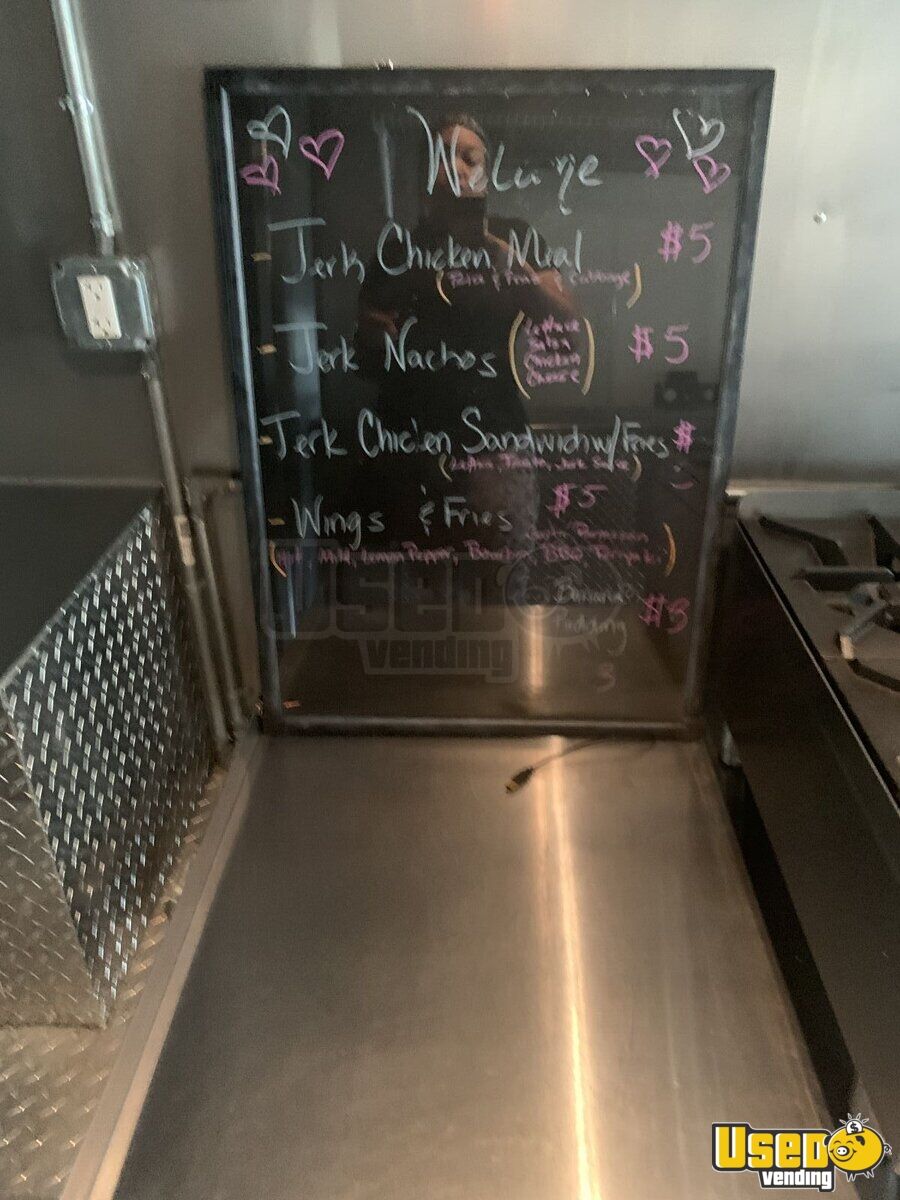 Welcome
- Jerk Chicken Meal $5
(Rice & Peas & Cabbage)
- Jerk Nachos (Lettuce Salsa Chicken Cheese) $5
- Jerk Chicken Sandwich w/ Fries $
(Jerk Sauce)
- Wings & Fries $5
Garlic Parmesan
(Hot, Mild, Lemon Pepper, Bourbon, BBQ, Teriyaki)
Banana
Pudding $3
Used
vending
Used
vending